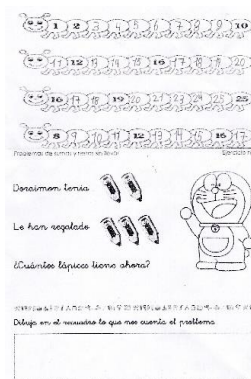 1 2 3 4 5 6 7 8 9 10
11 12 13 14 15 16 17 18 19 20
16 17 18 19 20 21 23 24 25 25
8 9 10 11 12 13 14 15 16 17
Problemas de sumas y restas sin llevar
Doraimon tenia
Le han regalado
¿Cuántos lápices tiene ahora?
Dibuja en el recuadro lo que nos cuenta el problema